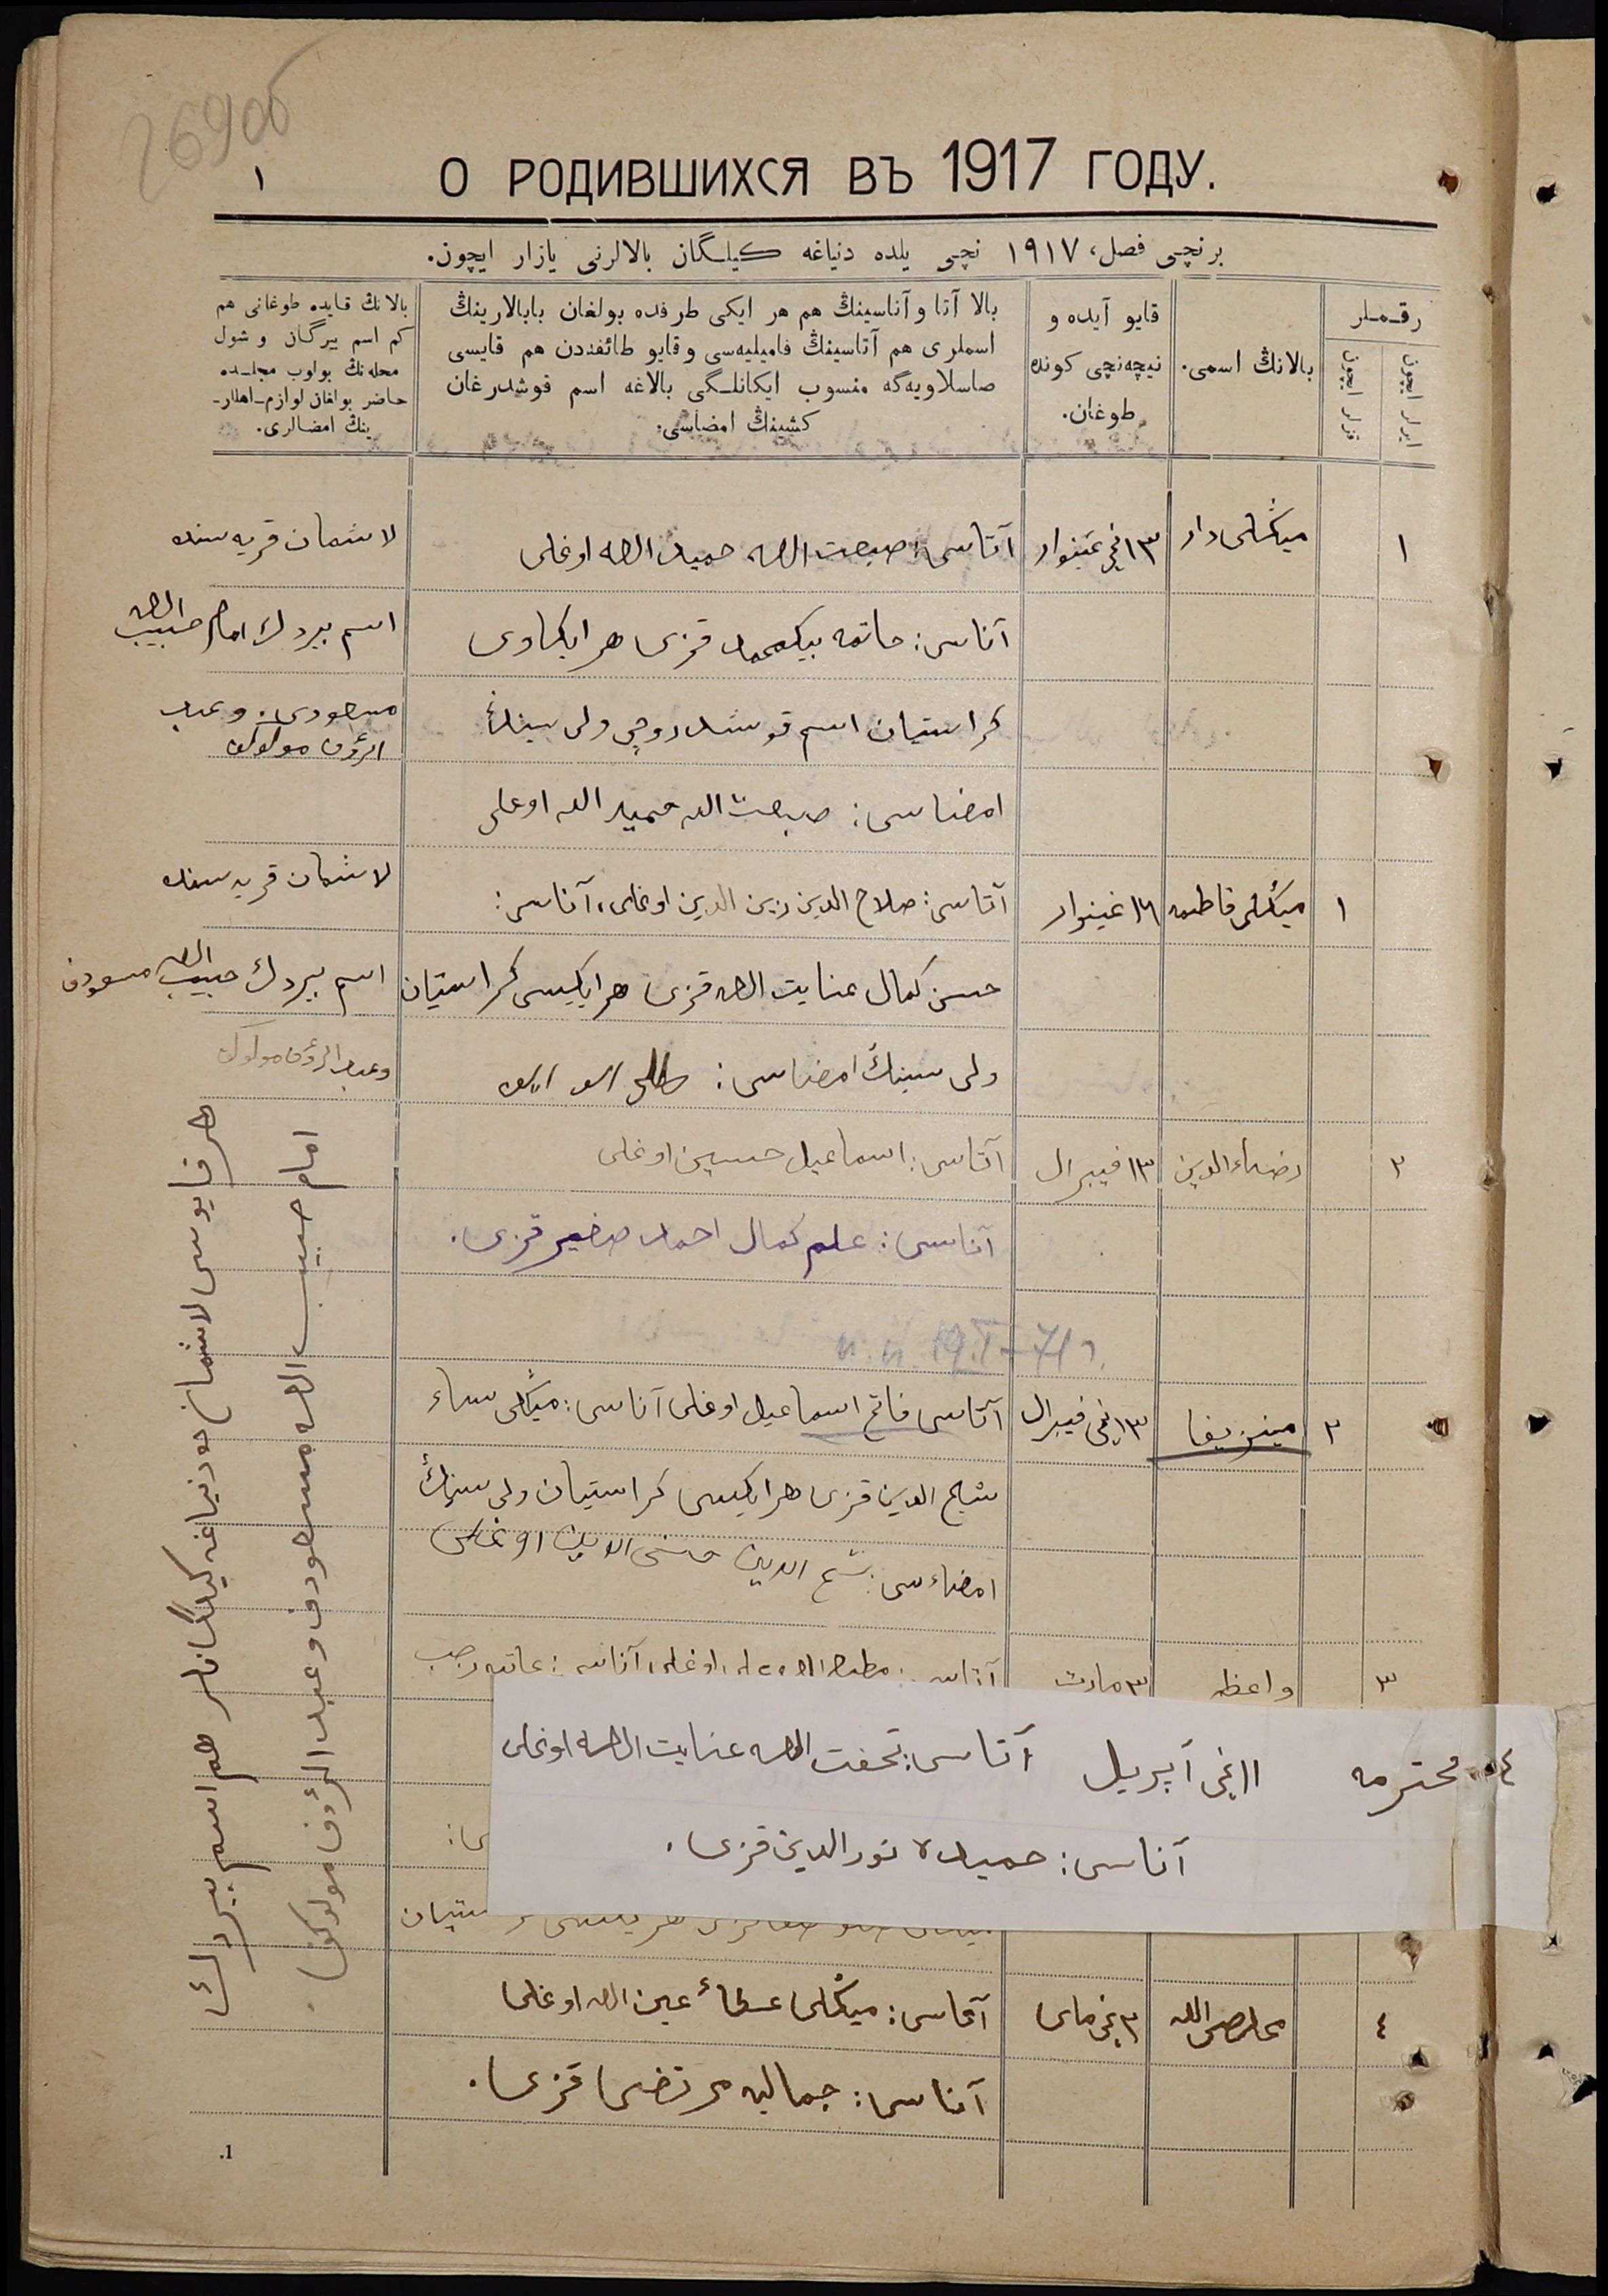 269об
١
О РОДИВШИХСЯ ВЪ 1917 ГОДУ.
برنچی فصل، ١٩١٧ نچی یلده دنیاغه کیلگان بالالرنی یازار ایچون.
رقملر
ایرلر ایچون
قزلر ایچون
بالانڭ اسمی.
قایو آیده و
نیچه‌نچی کونده
طوغان.
بالا آتا و آناسینڭ هم هر ایکی طرفده بولغان بابالارینڭ
اسملری هم آتاسینڭ فامیلیه‌سی و قایو طائفه‌دن هم قایسی
صاسلاویه‌گه منسوب ایکانلگی بالاغه اسم قوشدرغان
کشینڭ امضاسی.
بالانڭ قایده طوغانی هم
کم اسم بیرگان و شول
محله‌نڭ بولوب مجلده
حاضر بولغان لوازم اهللر-
ینڭ امضالری.
١
میڭلی دار
١٣ نچی غینوار
آتاسی: صبعت الله حمید الله اوغلی
لاشمان قریه سنده
آناسی: حاتمه بیکمحمد قزی هر ایکاوی
اسم بیردك امام حبیب الله
کراستیان اسم قوشدروچی ولی سینڭ
مسعودی. و عبد
الرؤف مولوکف
امضاسی: صبعت الله حمید الله اوغلی
١
میڭلی فاطمه
١٦ غینوار
آتاسی: صلاح الدین زین الدین اوغلی، آناسی:
لاشمان قریه سنده
حسن کمال عنایت الله قزی هر ایکیسی کراستیان
اسم بیردك حبیب الله مسعودف
ولی سینڭ امضاسی:
وعبد الرؤف مولوکف
٢
رضاء الدین
١٣ فیبرال
آتاسی: اسماعیل حسین اوغلی
آناسی: علم کمال احمد صغیر قزی.
٢
مینزیفا
١٣ نچی فیبرال
آتاسی فاتح اسماعیل اوغلی آناسی: میڭلی نساء
شیخ الدین قزی هر ایکیسی کراستیان ولی سینڭ
امضاءسی: شیخ الدین حسنی الدین اوغلی
٣
واعظه
٣ مارت
اوغلی، آناسی: عاتیه رجب
٤
محترمه
١١ نچی آپریل
آتاسی: تحفت الله عنایت الله اوغلی
آناسی: حمیده نور الدین قزی.
ی:
ستیان
٤
مخلص الله
٣ نچی مای
آتاسی: میڭلی عطاء عین الله اوغلی
آناسی: جمالیه مرتضی قزی.
هر قایوسی لاشمان ده دنیاغه کیلگانلر هم اسم بیردك
امام حبیب الله مسعودف و عبد الرؤف مولوکف.
1.